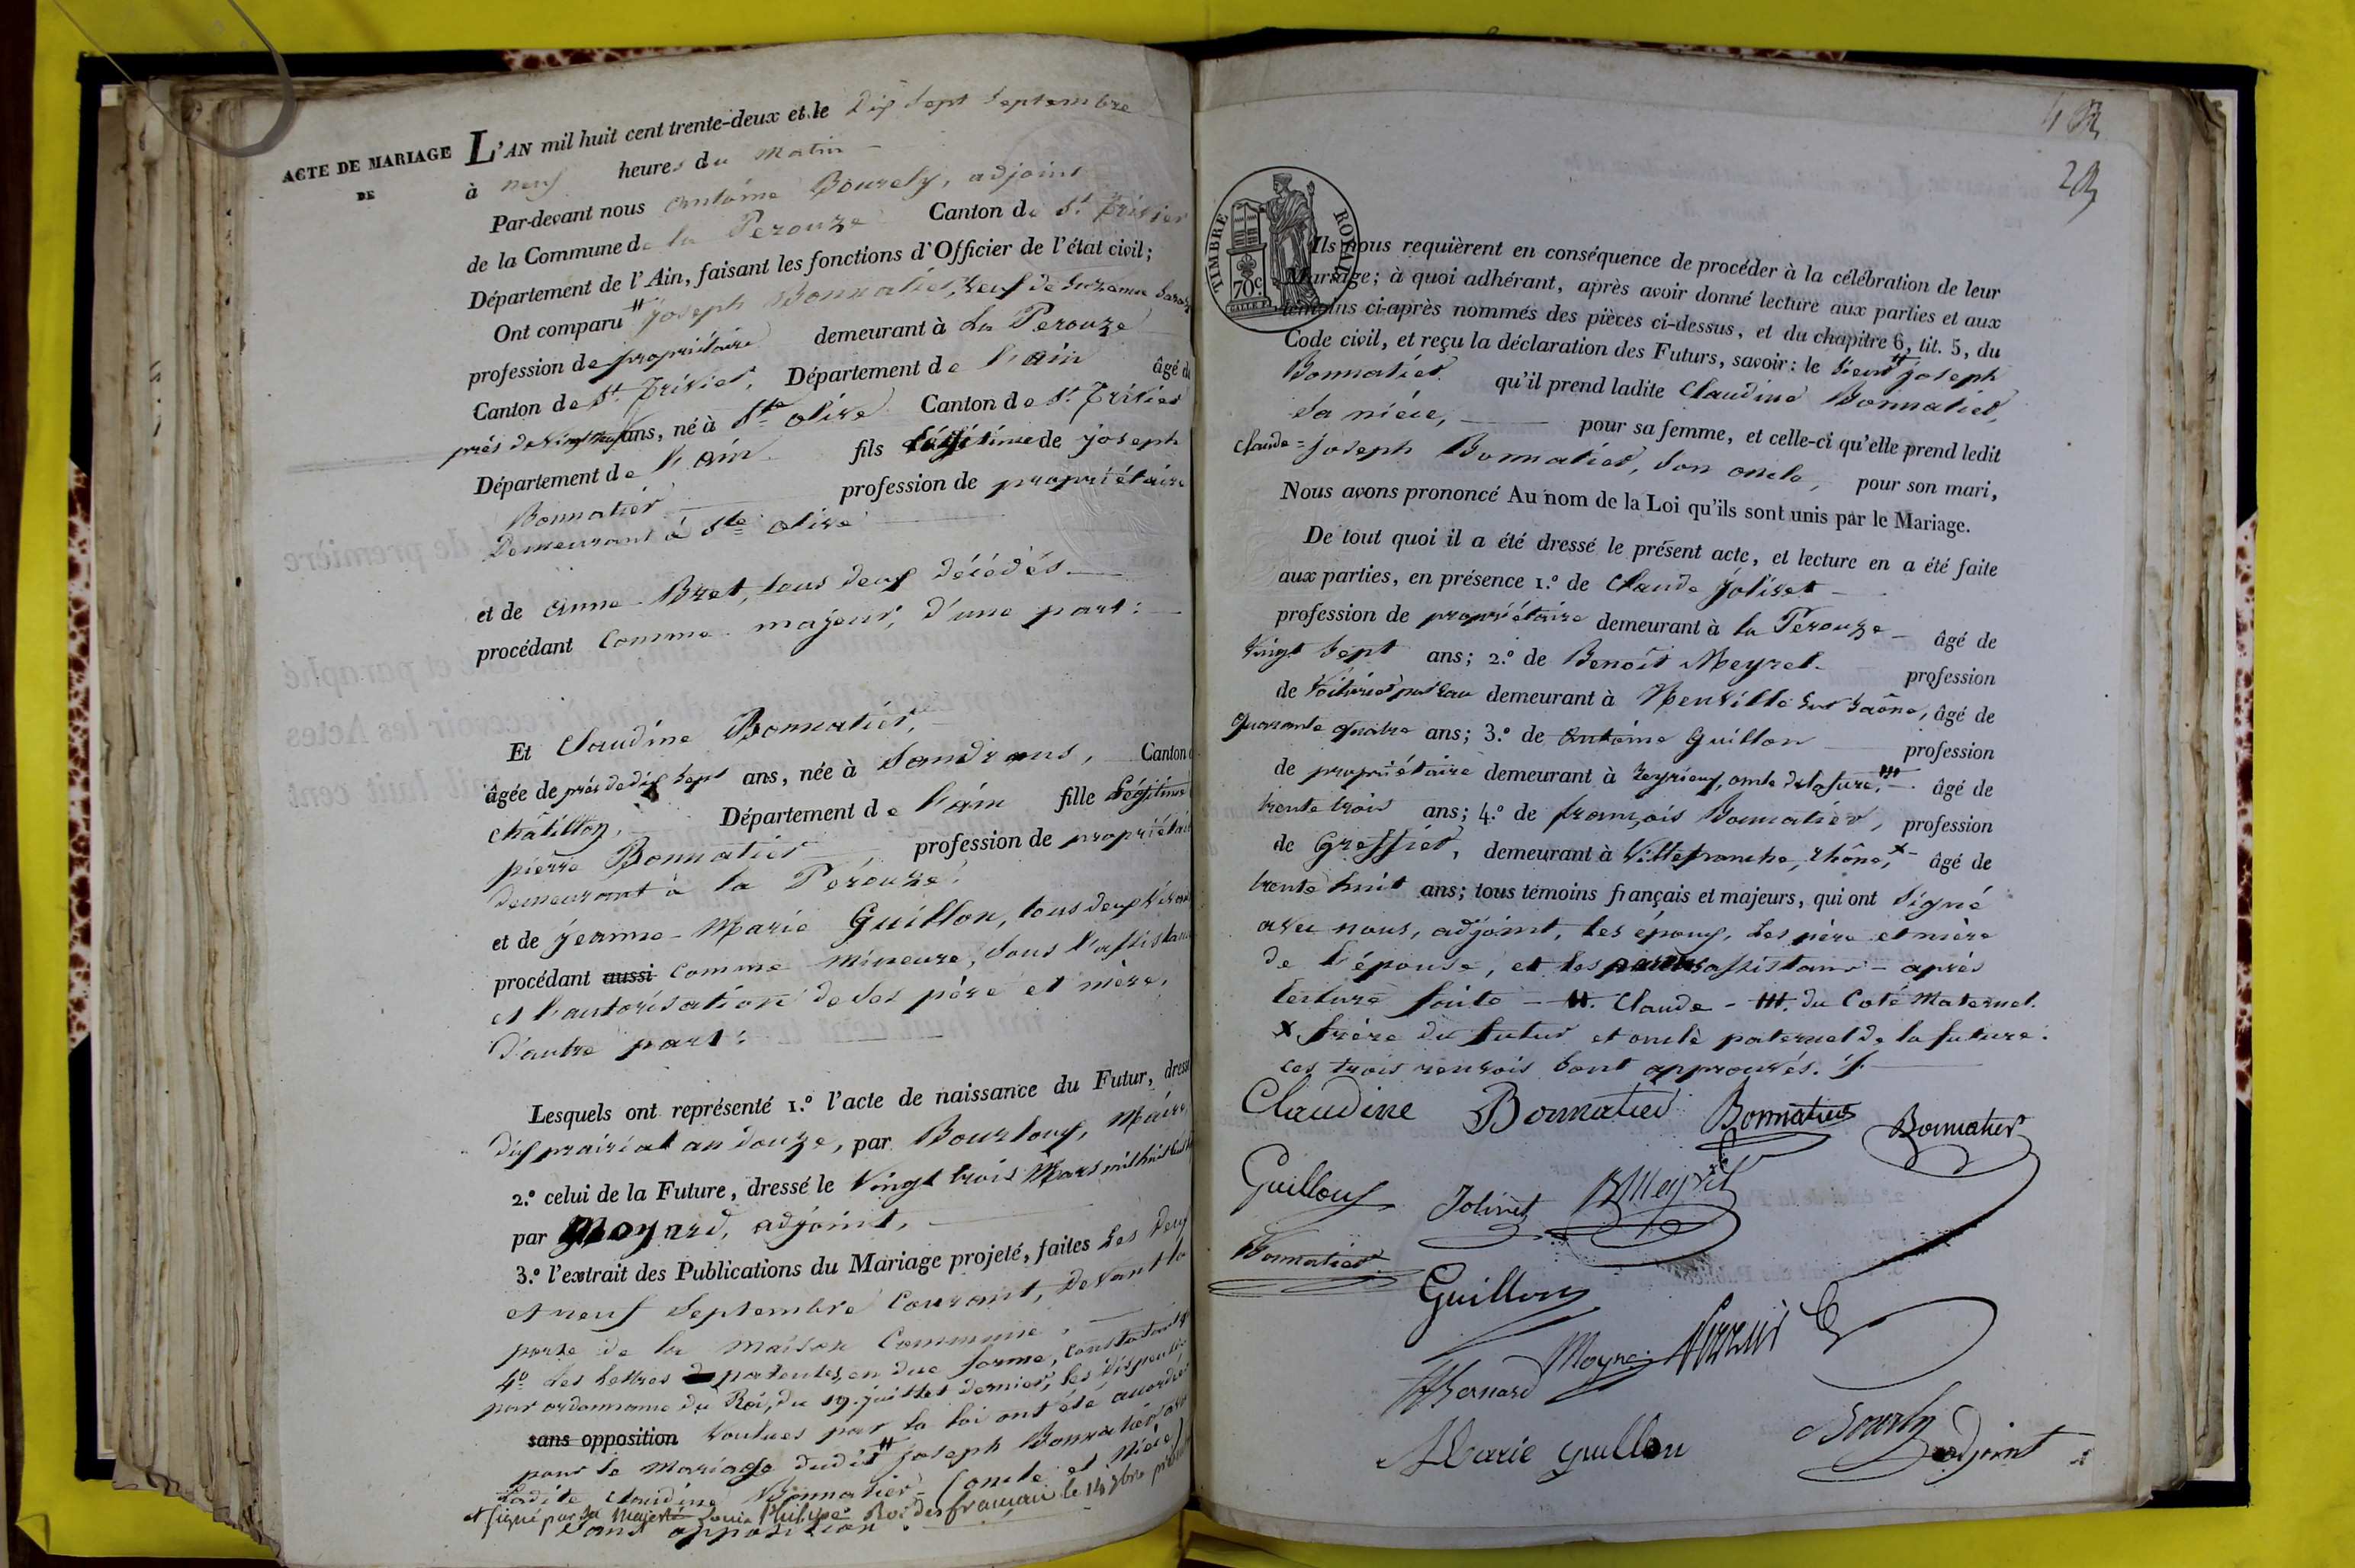 ACTE DE MARIAGE
DE
L'AN mil huit cent trente-deux et le dix sept Septembre
à neuf heures du matin
Par-devant nous antoine Bourly, adjoint
de la Commune de la Perouze Canton de St. Trivier
Département de l'Ain, faisant les fonctions d'Officier de l'état civil;
Ont comparu # joseph Bonnatier, veuf de Suzanne
profession de propriétaire demeurant à La Perouze
Canton de St. Trivier, Département de l'ain âgé de
près de vingt neuf ans, né à Ste. olive Canton de St. Trivier
Département de l'ain fils légitime de joseph
Bonnatier profession de propriétaire
Demeurant à Ste. olive
et de anne Bret, tous deux décédés
procédant Comme majeur, d'une part:
Et Claudine Bonnatier,
âgée de près de dix sept ans, née à Sandrans, Canton
châtillon, Département de l'ain fille légitime
pierre Bonnatier, profession de propriétaire
demeurant à la Pérouze.
et de jeanne-Marie Guillon, tous deux
procédant aussi Comme Mineure, sous l'assistance
et l'autorisation de Ses père et mère,
D'autre part:
Lesquels ont représenté 1.° l'acte de naissance du Futur, dressé
dix prairial an douze, par Bourloux, Maire
2.° celui de la Future, dressé le Vingt trois Mars mil huit cent
par Moyard, adjoint,
3.° l'extrait des Publications du Mariage projeté, faites Les deux
et neuf Septembre Courant, devant la
porte de la maison Commune.
4° Les Lettres patentes, en due forme, constatant que
par ordonnance du Roi, du 19. juillet dernier, les dispenses
sans opposition voulues par la loi ont été accordées
pour le mariage dudit # joseph Bonnatier avec
Ladite Claudine Bonnatier (oncle et Nièce)
et signé par Sa Majesté Louis Philippe Roi des français le 14 7bre
Sans opposition.
4
TIMBRE ROYAL
70c
Ils nous requièrent en conséquence de procéder à la célébration de leur
Mariage; à quoi adhérant, après avoir donné lecture aux parties et aux
témoins ci-après nommés des pièces ci-dessus, et du chapitre 6, tit. 5, du
Code civil, et reçu la déclaration des Futurs, savoir: le Sieur # joseph
Bonnatier qu'il prend ladite Claudine Bonnatier,
Sa nièce, pour sa femme, et celle-ci qu'elle prend ledit
Claude = joseph Bonnatier, Son oncle, pour son mari,
Nous avons prononcé Au nom de la Loi qu'ils sont unis par le Mariage.
De tout quoi il a été dressé le présent acte, et lecture en a été faite
aux parties, en présence 1.° de Claude Jolivet
profession de propriétaire demeurant à la Perouze âgé de
Vingt Sept ans; 2.° de Benoît Meyret profession
de Voiturier par eau demeurant à Neuville Sur Saône, âgé de
Quarante quatre ans; 3.° de antoine Guillon profession
de propriétaire demeurant à Reyrieux, oncle de la future, ### âgé de
trente trois ans; 4.° de françois Bonnatier, profession
de Greffier, demeurant à Villefranche, Rhône, x âgé de
trente huit ans; tous témoins français et majeurs, qui ont Signé
avec nous, adjoint, les époux, Les père et mère
de l'épouse, et les parens assistans - après
lecture faite - #. Claude - ###. du Coté Maternel.
x frère du futur et oncle paternel de la future.
Ces trois renvois Sont approuvés. /.
Claudine Bonnatier Bonnatier Bonnatier
Guilloux Jolivet B Meyret
Bonnatier
Guillon
Bernard Moyne
Marie guillon Bourly adjoint